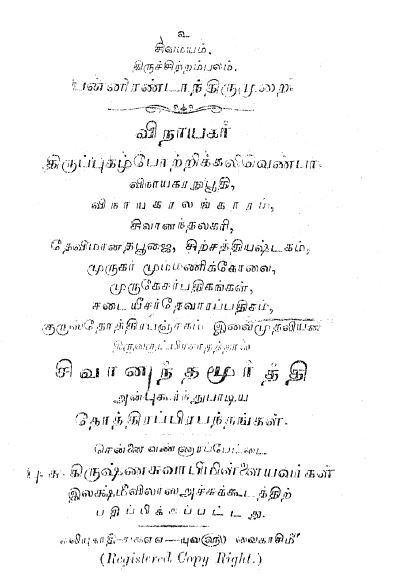 உ
சிவமயம்.
திருச்சிற்றம்பலம்.
பன்னிரண்டாந்திருமுறை.
விநாயகர்
திருப்புகழ்போற்றிக்கலிவெண்பா.
விநாயகரநுபூதி,
விநாயகரலங்காரம்,
சிவானந்தலகரி,
தேவிமானதபூஜை, சிற்சத்தியஷ்டகம்,
முருகர் மும்மணிக்கோவை,
முருகேசர்பதிகங்கள்,
சடையீசர்தேவாரப்பதிகம்,
குருஸ்தோத்திரபஞ்சகம் இவைமுதலியன
திருவருட்பிரசாதத்தால்
சிவானந்தமூர்த்தி
அன்புகூர்ந்துபாடிய
தோத்திரப்பிரபந்தங்கள்.
சென்னை வண்ணாரப்பேட்டை
பு. க. கிருஷ்ணசுவாமிபிள்ளையவர்கள்
இலக்ஷ்மீவிலாஸஅச்சுக்கூடத்திற்
பதிப்பிக்கப்பட்டது.
கலியுகாதி வைகாசிமீ
(Registered Copy Right.)